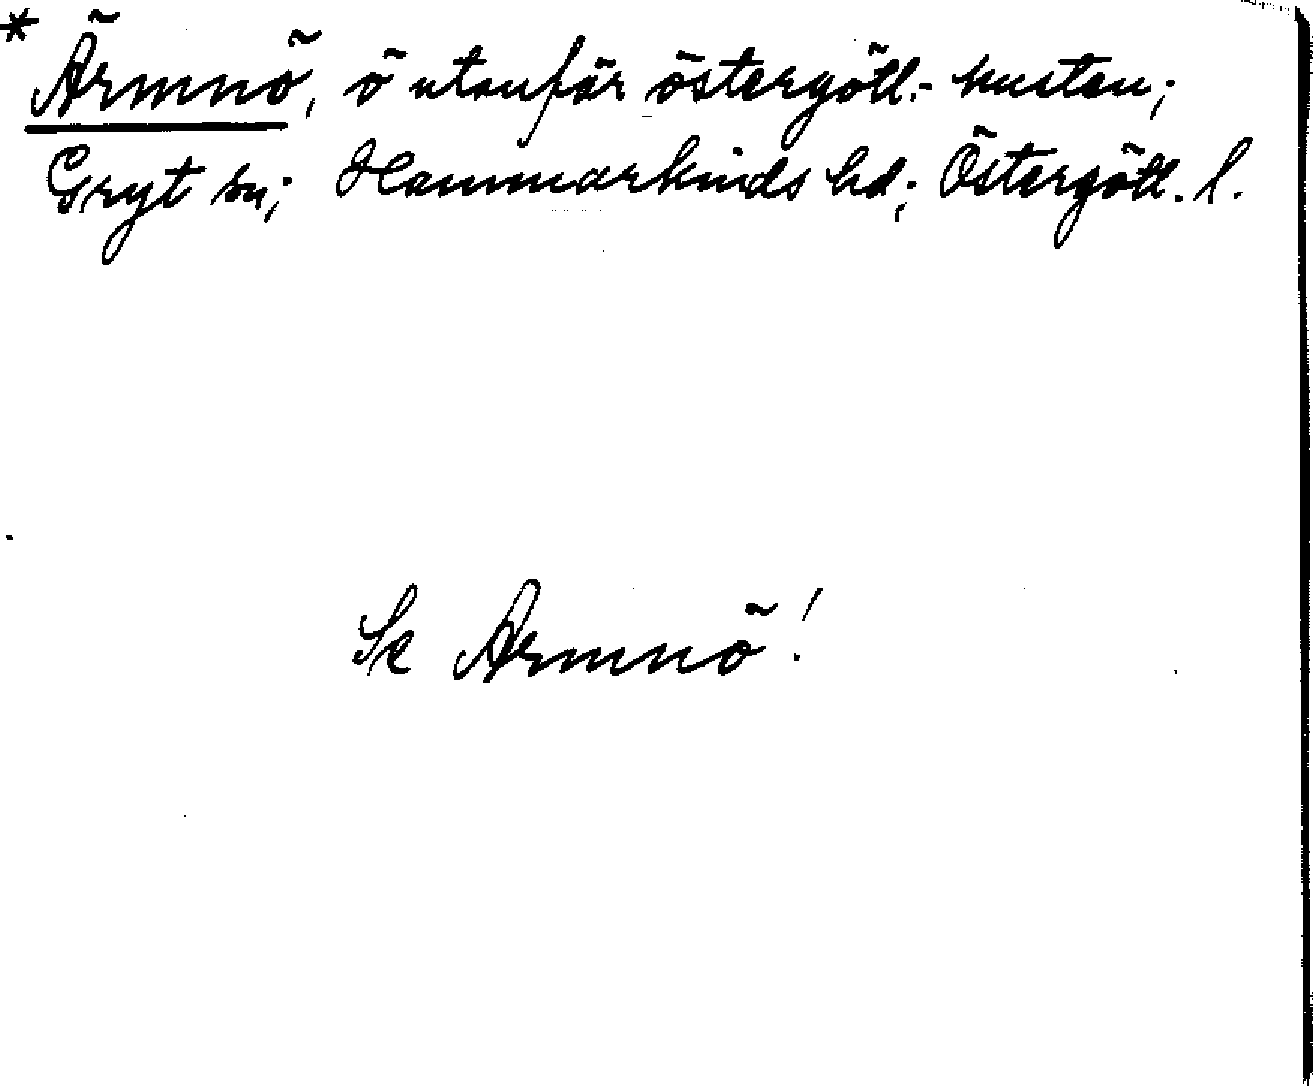 * Ärmnö, ö utanför östergötl.- kusten;
Gryt sn; Hammarkinds hd; Östergötl. l.
Se Armnö!